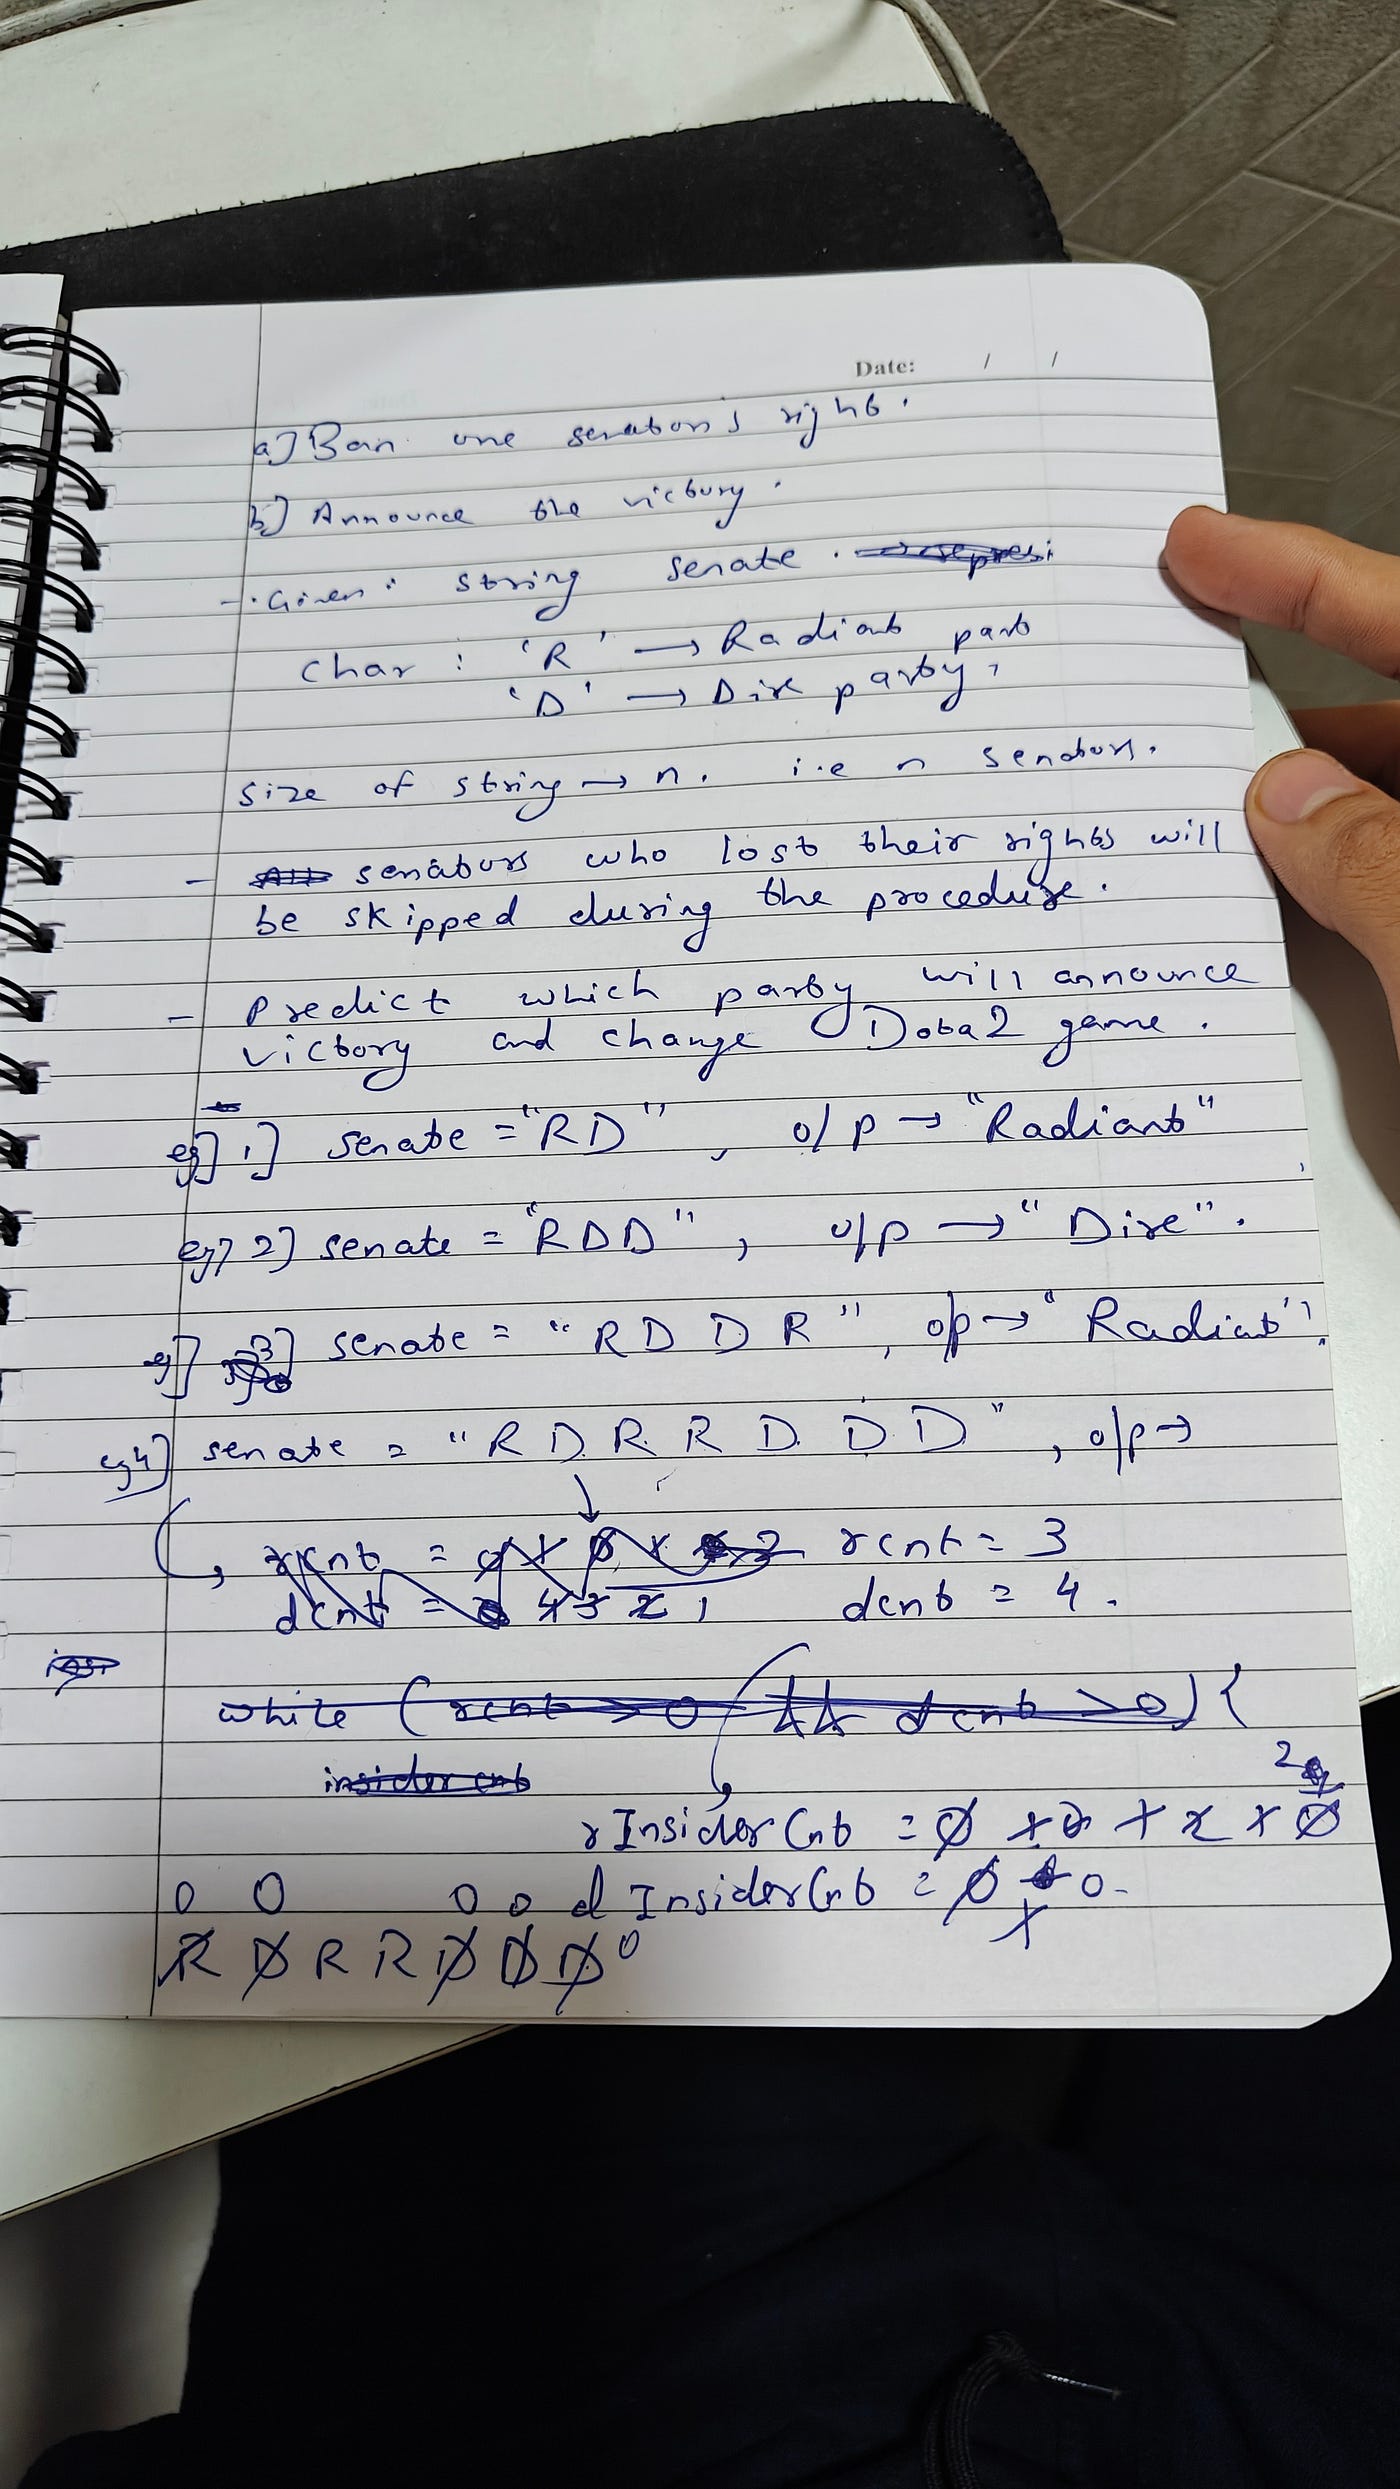 Date: / /
a] Ban one senators right.
b] Announce the victory.
- Given: string senate.
char : 'R' → Radiant part
'D' → Dire party,
size of string → n. i.e n senators.
- senators who lost their rights will
be skipped during the procedure.
- Predict which party will announce
victory and change Dota2 game.
eg] 1] senate = "RD" , o/p → "Radiant"
eg] 2] senate = "RDD" , o/p → "Dire".
eg] 3] senate = "RDDR" , o/p → "Radiant".
eg4] senate = "RDRRDDD" , o/p →
rcnt = rcnt = 3
dcnt = 4 3 2 1 dcnt = 4.
while (rcnt > 0 && dcnt > 0) {
insider cnt
2
rInsiderCnt = 0 1 0 1 2 1 0
0 0 0 0 dInsiderCnt = 0 0
1
R D R R D D D 0